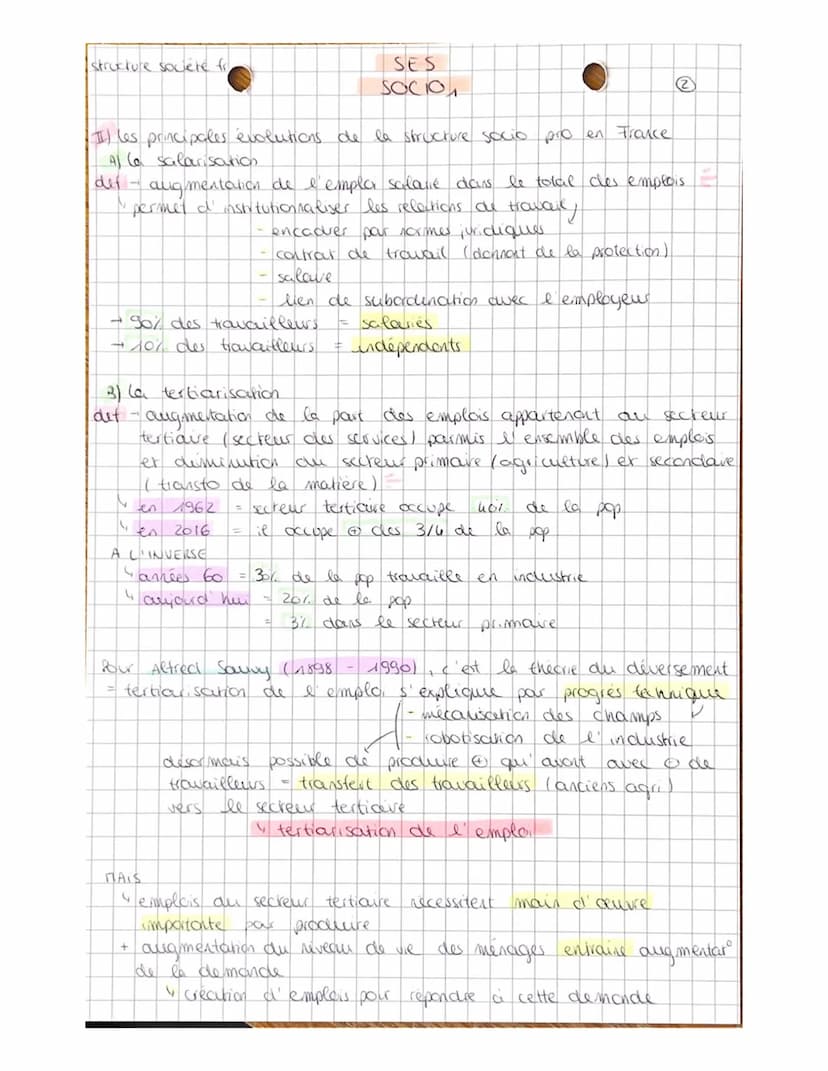 structure société fr
SES
SOCIO 1
2
II) Les principales évolutions de la structure socio pro en France
A) La salarisation
def - augmentation de l'emploi salarié dans le total des emplois
↳ permet d'institutionnaliser les relations du travail,
- encadrer par normes juridiques
- contrat de travail (donnant de la protection)
- salaire
- lien de subordination avec l'employeur
→ 90% des travailleurs = salariés
→ 10% des travailleurs = indépendants
B) La tertiarisation
def - augmentation de la part des emplois appartenant au secteur
tertiaire (secteur des services) parmis l'ensemble des emplois
et diminution du secteur primaire (agriculture) et secondaire
(transfo de la matière)
↳ en 1962 = secteur tertiaire occupe 40% de la pop
↳ en 2016 = il occupe ⊕ des 3/4 de la pop
A L'INVERSE
↳ années 60 = 30% de la pop travaille en industrie
↳ aujourd'hui = 20% de la pop
= 3% dans le secteur primaire
Pour Alfred Sauvy (1898 - 1990), c'est la théorie du déversement
= tertiarisation de l'emploi s'explique par progrès technique
- mécanisation des champs
- robotisation de l'industrie
désormais possible de produire ⊕ qu'avant avec ⊖ de
travailleurs = transfert des travailleurs (anciens agri)
vers le secteur tertiaire
↳ tertiarisation de l'emploi
MAIS
↳ emplois du secteur tertiaire nécessitent main d'œuvre
importante par produire
+ augmentation du niveau de vie des ménages entraine augmentat°
de la demande
↳ création d'emplois pour répondre à cette demande